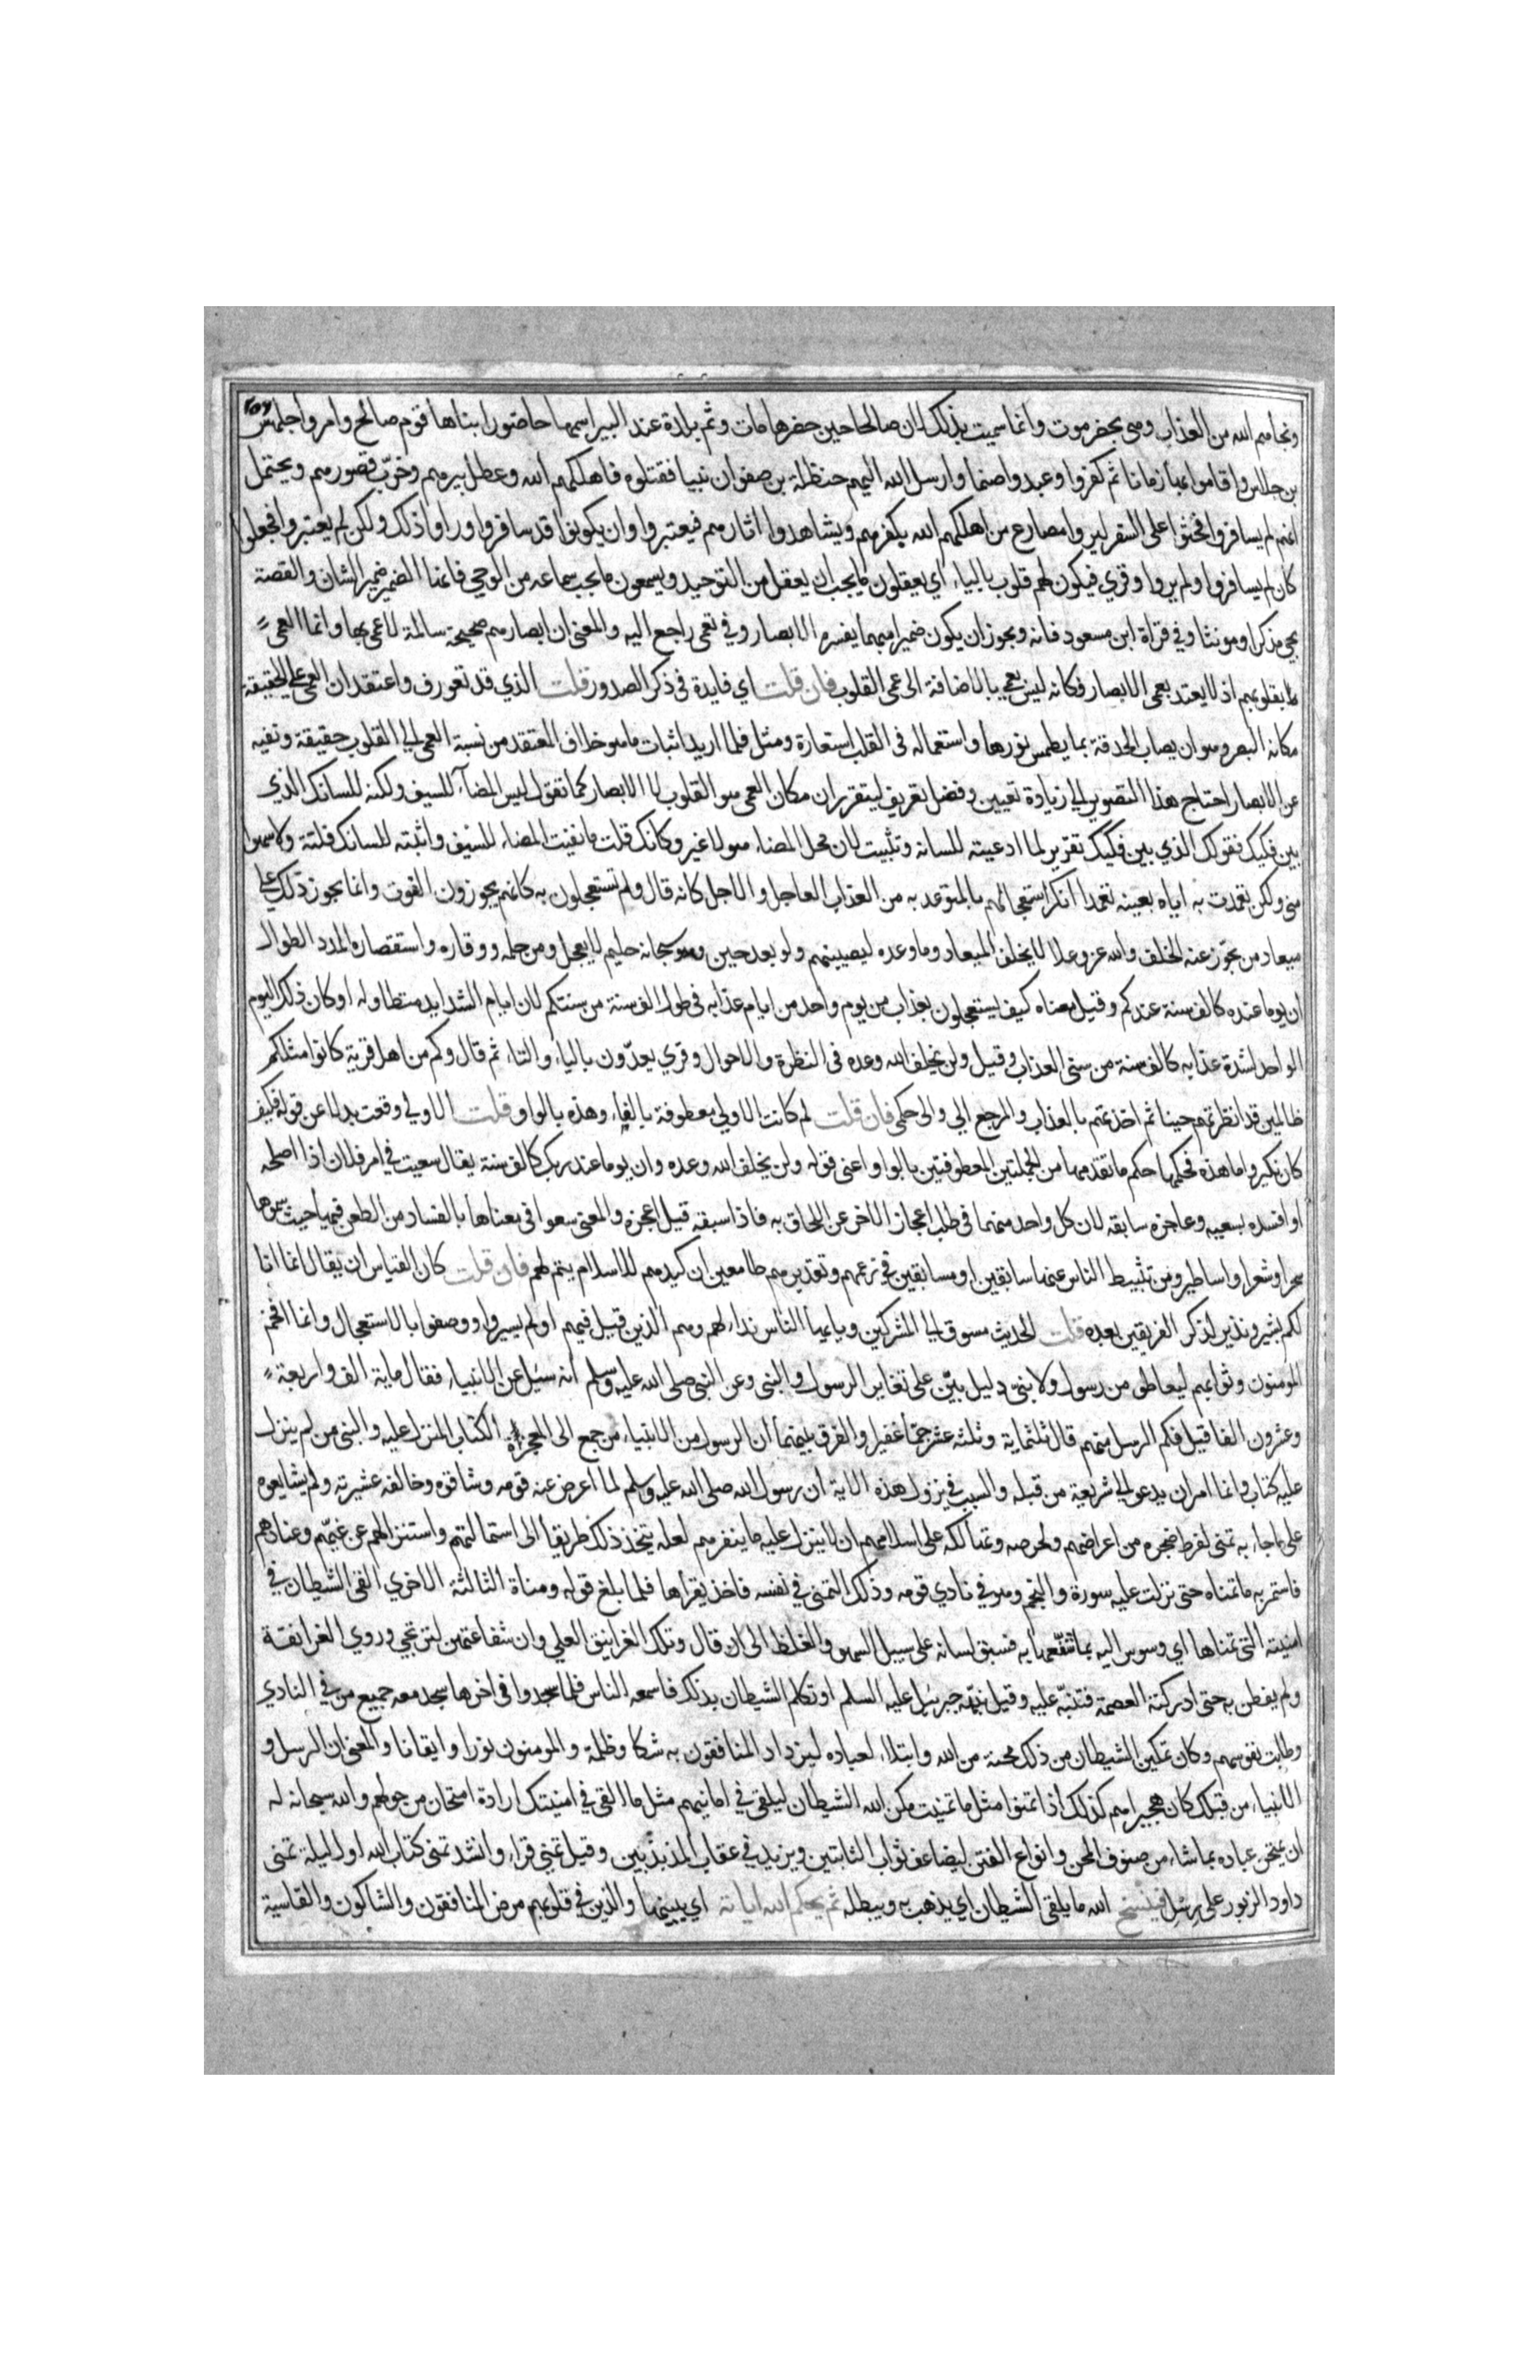 ونجاهم الله من العذاب وهي بحضرموت وانما سميت بذلك لان صالحا حين حضرها مات وثم بلدة عند البير اسمها حاضورا بناها قوم صالح وامروا جلهس
بن جلاس واقاموا بها زمانا ثم كفروا وعبدوا صنما وارسل الله اليهم حنظلة بن صفوان نبيا فقتلوه فاهلكهم الله وعطل بيرهم وخرّب قصورهم ويحتمل
انهم لم يسافروا فحثوا على السفر ليروا مصارع من اهلكهم الله بكفرهم ويشاهدوا اثارهم فيعتبروا وان يكونوا قد سافروا وراوا ذلك ولكن لم يعتبروا فجعلوا
كان لم يسافروا ولم يروا وقري فيكون لهم قلوب بالياء اي يعقلون ما يجب ان يعقل من التوحيد ويسمعون ما يجب سماعه من الوحي فانها الضمير ضمير الشان والقصة
يجي مذكرا ومونثا وفي قراة ابن مسعود فانه ويجوز ان يكون ضميرا مبهما يفسره الابصار وفي تعمى راجع اليه والمعنى ان ابصارهم صحيحة سالمة لا عمى بها وانما العمى
بقلوبهم اذ لا يعتد بعمى الابصار فكانه ليس بعمى بالاضافة الى عمى القلوب فان قلت اي فايدة فى ذكر الصدور قلت الذي قد تعورف واعتقد ان العمى على الحقيقة
مكانه البصر وهو ان يصاب الحدقة بما يطمس نورها واستعماله فى القلب استعارة ومثل فلما اريد اثبات ما هو خلاف المعتقد من نسبة العمى الى القلوب حقيقة ونفيه
عن الابصار احتاج هذا التصوير الى زيادة تعيين وفضل تعريف ليتقرر ان مكان العمى هو القلوب لا الابصار كما تقول ليس المضآ للسيف ولكنه للسانك الذي
بين فكيك فقولك الذي بين فكيك تقرير لما ادعيته للسانه وتثبيت لان محل المضاء هو لا غير وكانك قلت ما نفيت المضاء للسيف واثبته للسانك فلتة ولا سهوا
مني ولكن تعمدت به اياه بعينه تعمدا انكر استعجالهم بالمتوعد به من العذاب العاجل والاجل كانه قال ولم تستعجلون به كانهم يجوزون الفوت وانما يجوز ذلك على
ميعاد من يجوز عنه الخلف والله عز وعلا لا يخلف الميعاد وما وعده ليصيبنهم ولو بعد حين وهو سبحانه حليم لا يعجل ومن حلمه ووقاره واستقصاره المدد الطوال
ان يوما عنده كالف سنة عندكم وقيل معناه كيف يستعجلون بعذاب من يوم واحد من ايام عذابه فى طول الف سنة من سنتكم لان ايام الشدايد مستطاوله او كان ذلك اليوم
الواحد لشدة عذابه كالف سنة من سنى العذاب وقيل ولن يخلف الله وعده فى النظرة والاحوال وقري يعدّون بالياء والتاء ثم قال وكم من اهل قرية كانوا مثلكم
ظالمين قد انظرتهم حينا ثم اخذتهم بالعذاب والمرجع الي والى حكمى فان قلت لم كانت الاولى معطوفة بالفاء وهذه بالواو قلت الاولى وقعت بدلا عن قوله فكيف
كان نكير واما هذه فحكمها حكم ما تقدمها من الجملتين المعطوفتين بالواو اعنى قوله ولن يخلف الله وعده وان يوما عند ربك كالف سنة يقال سعيت في امر فلان اذا اصلحه
او افسده بسعيه وعاجزه سابقه لان كل واحد منهما فى طلب اعجاز الاخر عن اللحاق به فاذا سبقه قيل اعجزه والمعنى سعوا فى معناها بالفساد من الطعن فيها حيث سموها
سحرا وشعرا واساطير ومن تثبيط الناس عنها سابقين او مسابقين في زعمهم وتقديرهم طامعين ان كيدهم للاسلام يتم لهم فان قلت كان القياس ان يقال انما انا
لكم بشير ونذير لذكر الفريقين بعده قلت الحديث مسوق الى المشركين ويا ايها الناس نداء لهم وهم الذين قيل فيهم اولم يسيروا ووصفوا بالاستعجال وانما اقحم
المومنون وثوابهم ليغاظوا من رسول ولا نبى دليل بيّن على تغاير الرسول والنبى وعن النبى صلى الله عليه وسلم انه سئل عن الانبياء فقال ماية الف واربعة
وعشرون الفا قيل فكم الرسل منهم قال ثلثماية وثلثه عشر جمّا غفيرا والفرق بينهما ان الرسول من الانبياء من جمع الى المعجزة الكتاب المنزل عليه والنبى من لم ينزل
عليه كتاب وانما امر ان يدعو الى شريعة من قبله والسبب في نزول هذه الاية ان رسول الله صلى الله عليه وسلم لما اعرض عنه قومه وشاقوه وخالفه عشيرته ولم يشايعوه
على ما جاء به تمنى لفرط ضجره من اعراضهم ولحرصه وتهالكه على اسلامهم ان لا ينزل عليه ما ينفرهم لعله يتخذ ذلك طريقا الى استمالتهم واستنزالهم عن غيهم وعنادهم
فاستمر به ما تمناه حتى نزلت عليه سورة والنجم وهو في نادي قومه وذلك التمني في نفسه فاخذ يقراها فلما بلغ قوله ومناة الثالثة الاخرى القى الشيطان في
امنيته التى تمناها اي وسوس اليه بما شيّعها به فسبق لسانه على سبيل السهو والغلط الى ان قال وتلك الغرانيق العلي وان شفاعتهن لترتجى وروي الغرانقة
ولم يفطن به حتى ادركته العصمة فتنبّه عليه وقيل نبّهه جبرئيل عليه السلم او تكلم الشيطان بذلك فاسمعه الناس فلما سجدوا فى اخرها سجد معه جميع من في النادي
وطابت نفوسهم وكان تمكين الشيطان من ذلك محنة من الله وابتلاء لعباده ليزداد المنافقون به شكا وظلمة والمومنون نورا وايقانا والمعنى ان الرسل و
الانبياء من قبلك كان هجيراهم كذلك اذا تمنوا مثل ما تمنيت مكن الله الشيطان ليلقى في امانيهم مثل ما القى في امنيتك ارادة امتحان من حولهم والله سبحانه له
ان يمتحن عباده بما شاء من صنوف المحن وانواع الفتن ليضاعف ثواب الثابتين ويزيد في عقاب المذبذبين وقيل تمنى قراء وانشد تمنى كتاب الله اول ليلة تمنى
داود الزبور على رسل فينسخ الله ما يلقى الشيطان اي يذهب به ويبطله ثم يحكم الله اياته اي يبينها والذين في قلوبهم مرض المنافقون والشاكون والقاسية